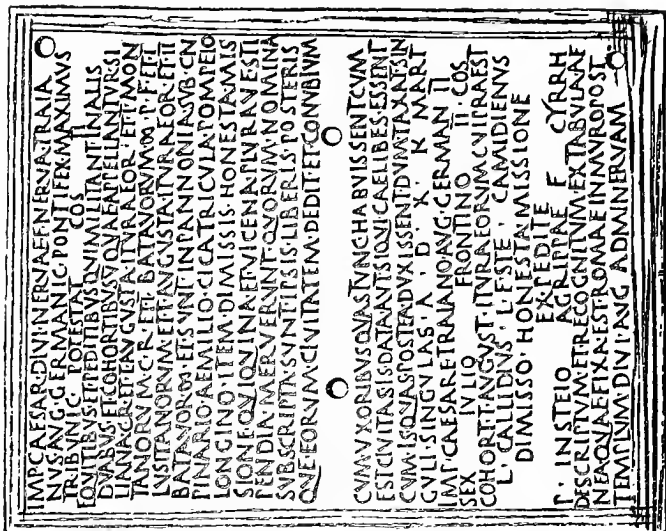 IMP·CAESAR·DIVI·NERVAE·F·NERVA·TRAIA
NVS·AVG·GERMANIC·PONTIFEX·MAXIMVS
TRIBVNIC POTESTAT COS II
EQVITIBVS·ET·PEDITIBVS·QVI·MILITANT·IN·ALIS
DVABVS·ET·COHORTIBVS·V·QVAE·APPELLANTVR·SI
LIANA·C·R·ET·I·AVGVSTA·ITVRAEOR·ET·I·MON
TANORVM·C·R·ET·I·BATAVORVM·∞·P·F·ET·I
LVSITANORVM·ET·I·AVGVSTA·ITVRAEOR·ET·II
BATAVORM·∞·ET·SVNT·IN·PANNONIA·SVB·CN
PINARIO·AEMILIO·CICATRICVLA·POMPEIO
LONGINO·ITEM·DIMISSIS·HONESTA·MIS
SIONE·QVI·QVINA·ET·VICENA·PLVRAVE·STI
PENDIA·MERVERVNT·QVORVM·NOMINA
SVBSCRIPTA·SVNT·IPSIS·LIBERIS·POSTERIS
QVE·EORVM·CIVITATEM·DEDIT·ET·CONVBIVM
CVM·VXORIBVS·QVAS·TVNC·HABVISSENT·CVM
EST·CIVITAS·IS·DATA·AVT·SIQVI·CAELIBES·ESSENT
CVM·IS·QVAS·POSTEA·DVXISSENT·DVMTAXAT·SIN
GVLI·SINGVLAS·A·D·X·K·MART
IMP·CAESARE·TRAIANO·AVG·GERMAN II
SEX IVLIO FRONTINO II·COS
COHORT·I·AVGVST·ITVRAEORVM·CVI·PRAEST
L·CALLIDIVS·L·F·STE·CAMIDIENVS
DIMISSO·HONESTA·MISSIONE
EXPEDITE
P·INSTEIO AGRIPPAE F CYRRH
DESCRIPTVM·ET·RECOGNITVM·EX·TABVLA·AE
NEA·QVAE·FIXA·EST·ROMAE·IN·MVRO·POST
TEMPLVM·DIVI·AVG AD·MINERVAM